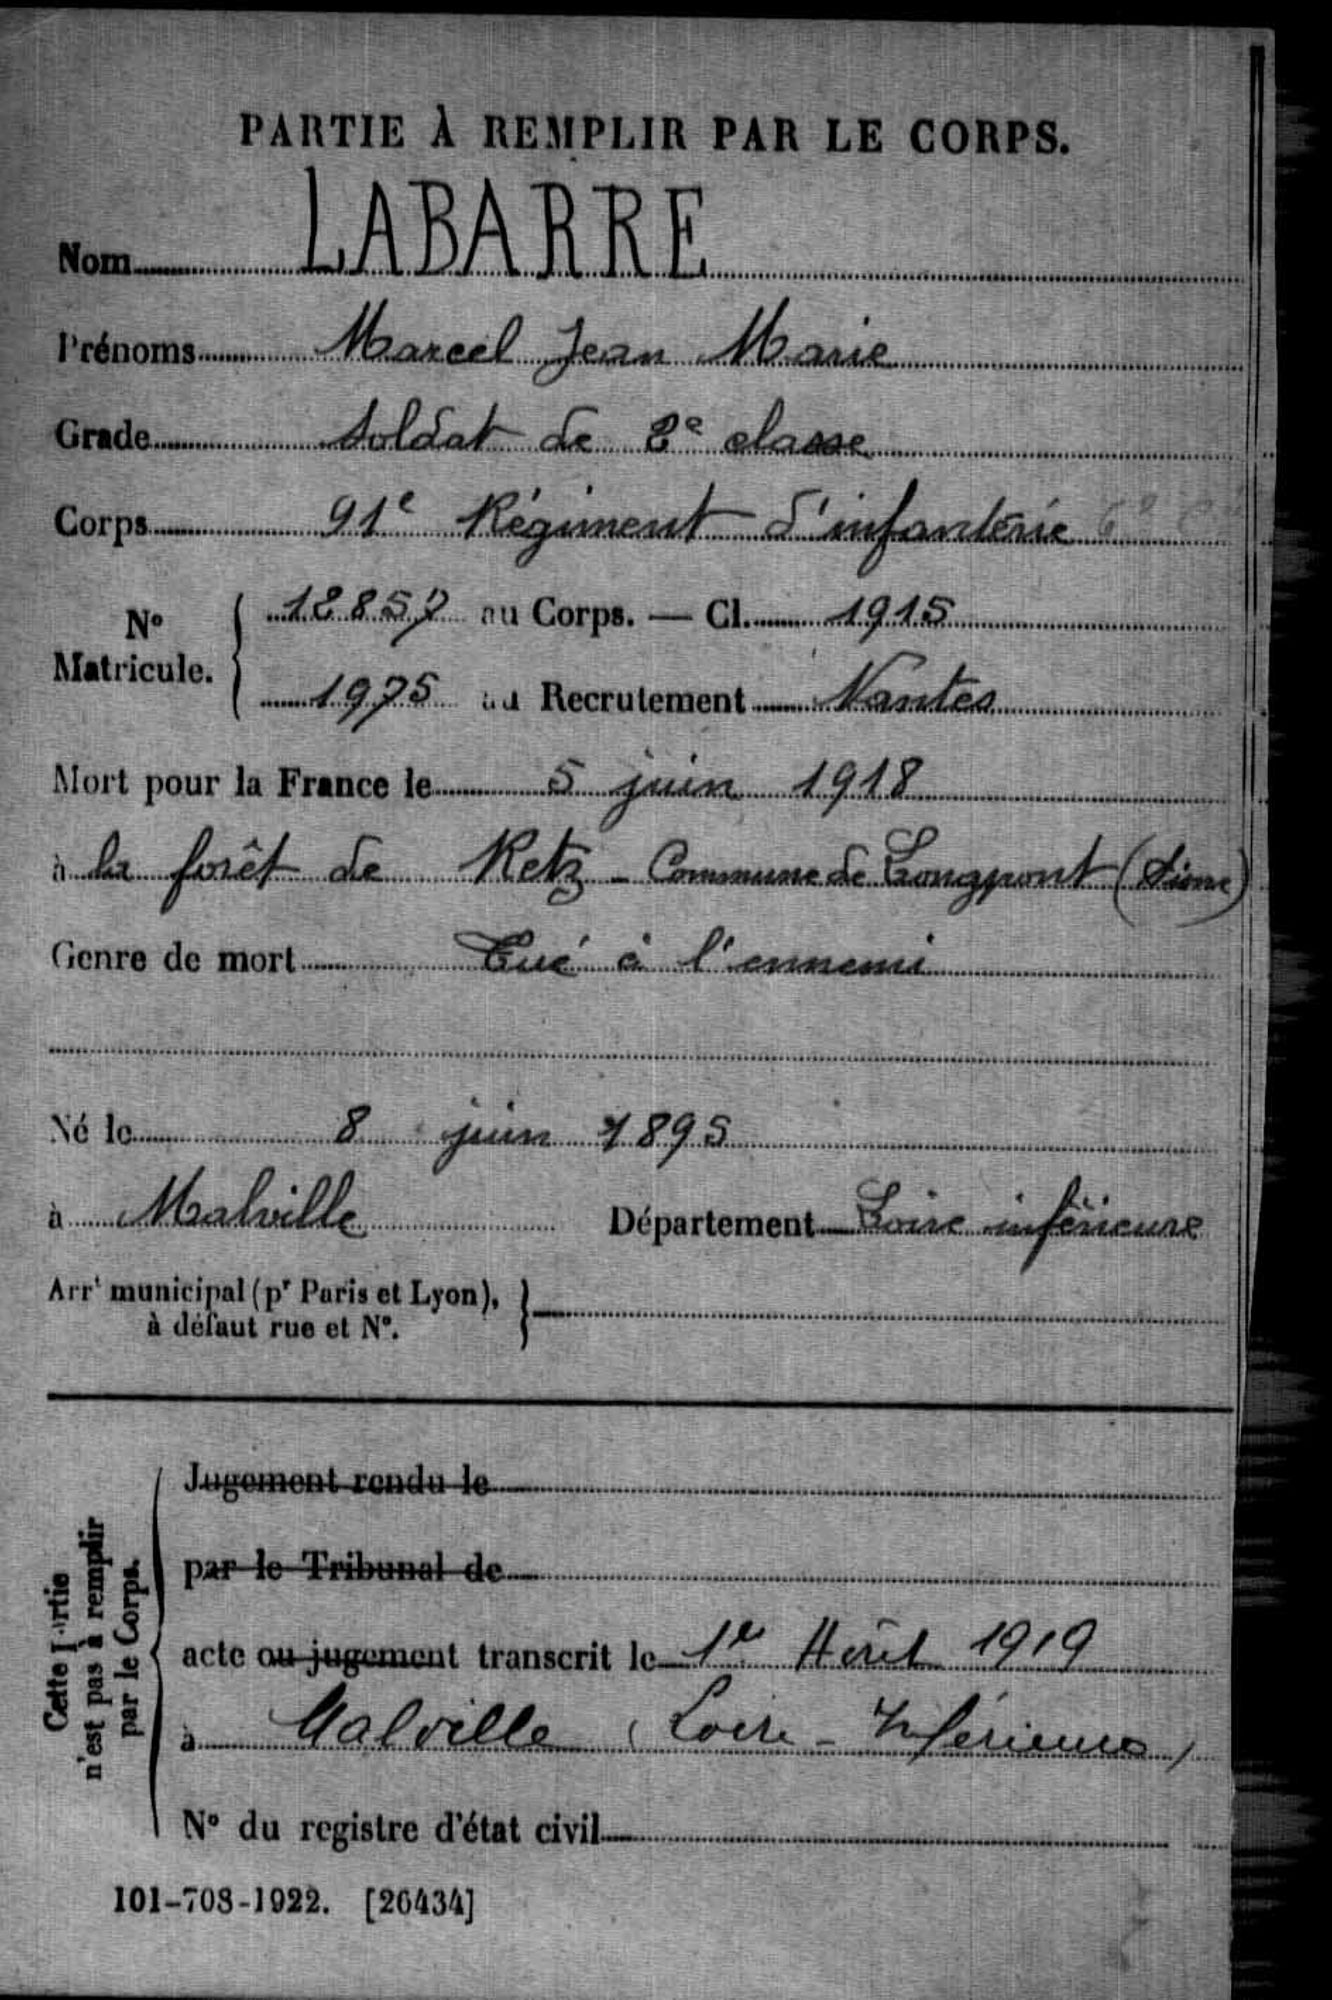 PARTIE À REMPLIR PAR LE CORPS.
Nom LABARRE
Prénoms Marcel Jean Marie
Grade Soldat de 2e classe
Corps 91e Régiment d'infanterie 6e
No Matricule. 12857 au Corps. — Cl. 1915
1975 au Recrutement Nantes
Mort pour la France le 5 juin 1918
à la forêt de Retz - Commune de Longpont (Aisne)
Genre de mort Tué à l'ennemi
Né le 8 juin 1895
à Malville Département Loire inférieure
Arrt municipal (pr Paris et Lyon),
à défaut rue et No.
Cette Partie
n'est pas à remplir
par le Corps.
Jugement rendu le
par le Tribunal de
acte ou jugement transcrit le 1er Avril 1919
à Malville (Loire-Inférieure)
No du registre d'état civil
101-708-1922. [26434]